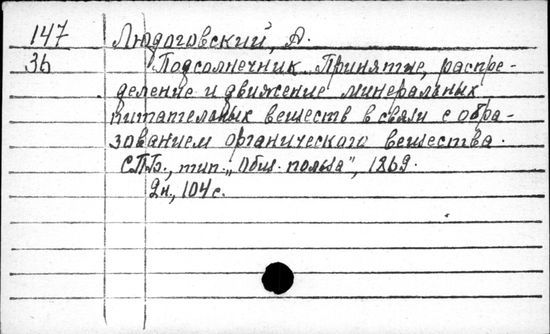 147 Людоговский, А.
36 Подсолнечник. Принятие, распре-
деление и движение минеральных
питательных веществ в связи с обра-
зованием органического вещества.
СПБ., тип. „Общ. польза", 1869.
2н., 104 с.